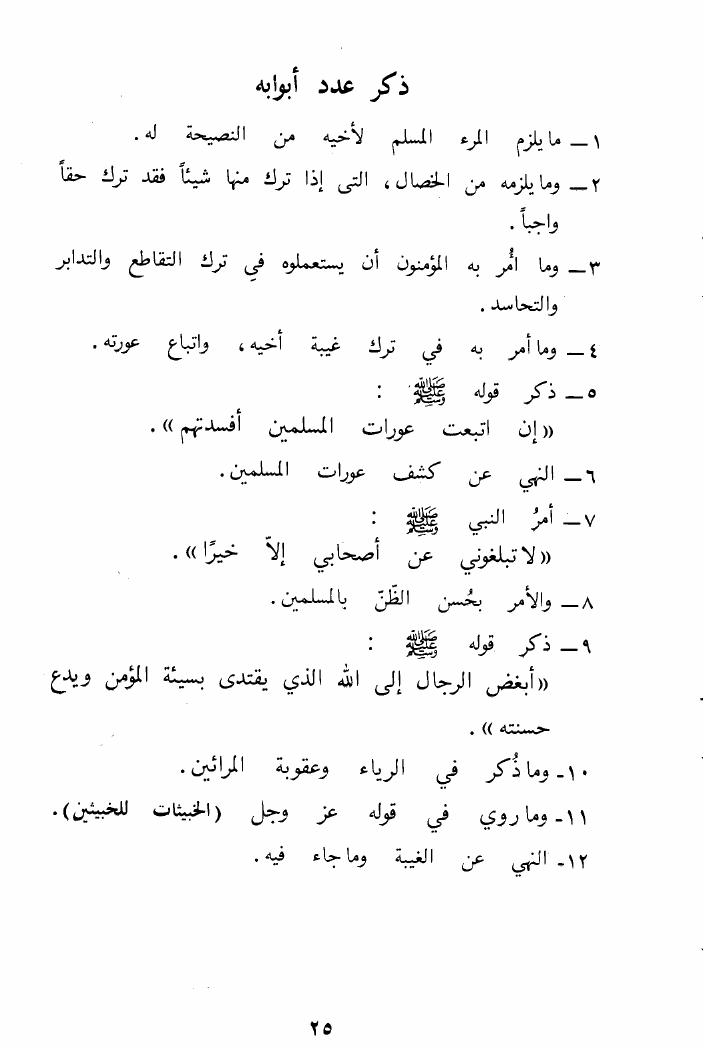 ذكر عدد أبوابه
١ــ مايلزم المرء المسلم لأخيه من النصيحة له.
٢ــ ومايلزمه من الخصال، التى إذا ترك منها شيئاً فقد ترك حقاً
واجباً.
٣ــ وما أُمر به المؤمنون أن يستعملوه في ترك التقاطع والتدابر
والتحاسد.
٤ــ وماأمر به في ترك غيبة أخيه، واتباع عورته.
٥ــ ذكر قوله ﷺ :
«إن اتبعت عورات المسلمين أفسدتهم».
٦ــ النهي عن كشف عورات المسلمين.
٧ــ أمرُ النبي ﷺ :
«لاتبلغوني عن أصحابي إلاّ خيرًا».
٨ــ والأمر بحُسن الظّنّ بالمسلمين.
٩ــ ذكر قوله ﷺ :
«أبغض الرجال إلى الله الذي يقتدى بسيئة المؤمن ويدع
حسنته».
١٠ـ وماذُكر في الرياء وعقوبة المرائين.
١١ـ وماروي في قوله عز وجل (الخبيثات للخبيثين).
١٢ـ النهي عن الغيبة وماجاء فيه.
٢٥